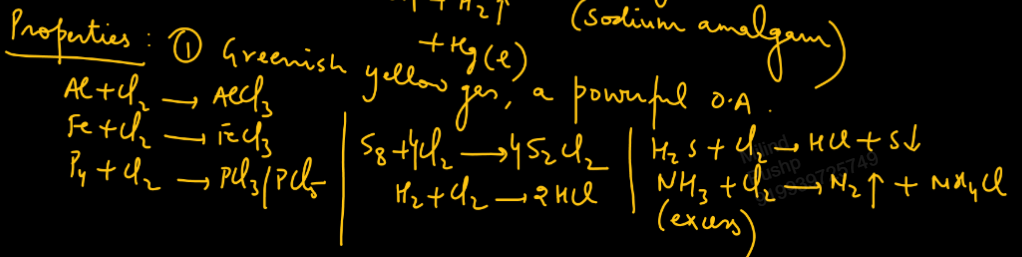 + H₂↑ (Sodium amalgam)
+ Hg(l)
Properties : ① Greenish yellow gas, a powerful O.A.
Al + Cl₂ → AlCl₃
Fe + Cl₂ → FeCl₃
P₄ + Cl₂ → PCl₃/PCl₅
S₈ + 4Cl₂ → 4S₂Cl₂
H₂ + Cl₂ → 2HCl
H₂S + Cl₂ → HCl + S↓
NH₃ + Cl₂ → N₂↑ + NH₄Cl
(excess)